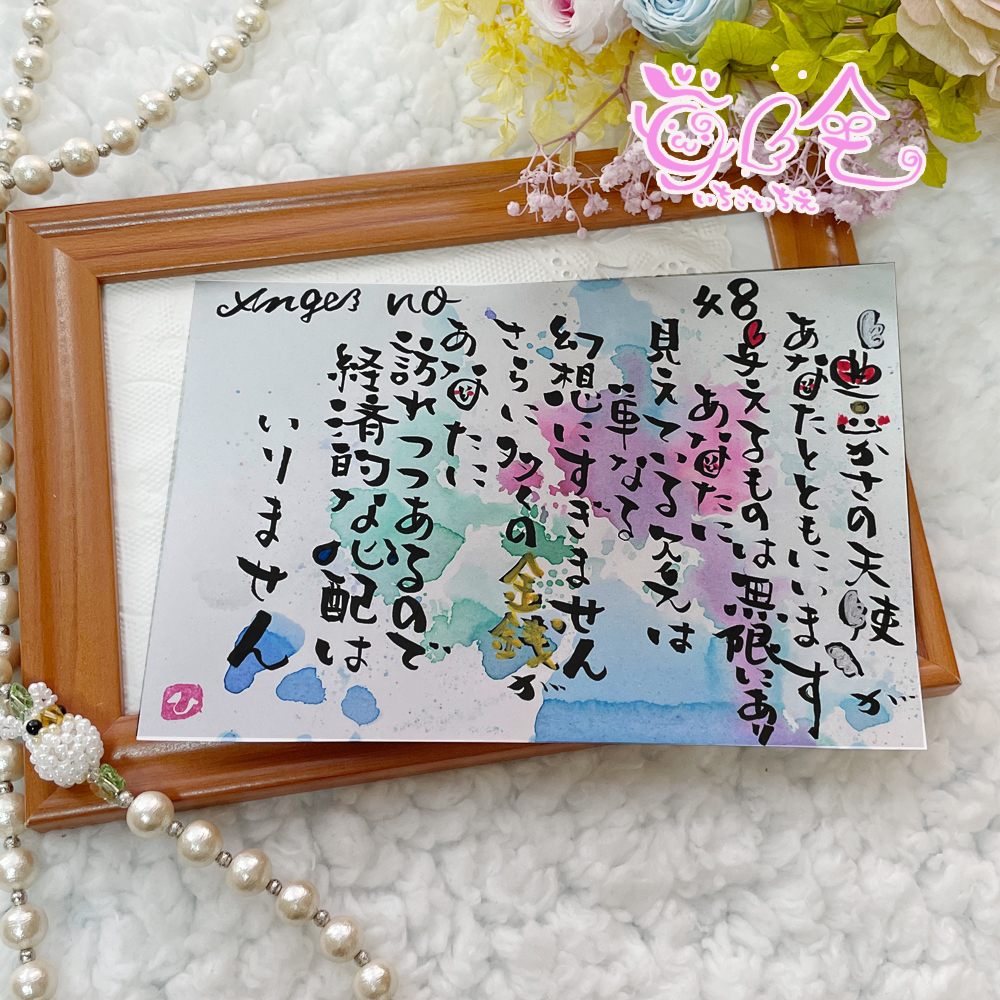 Angel no 48
豊かさの天使が
あなたとともにいます
与えるものは無限にあり
あなたに
見えている欠乏は
単なる
幻想にすぎません
さらに多くの金銭が
あなたに
訪れつつあるので
経済的な心配は
いりません
ひ
いちごいちえ